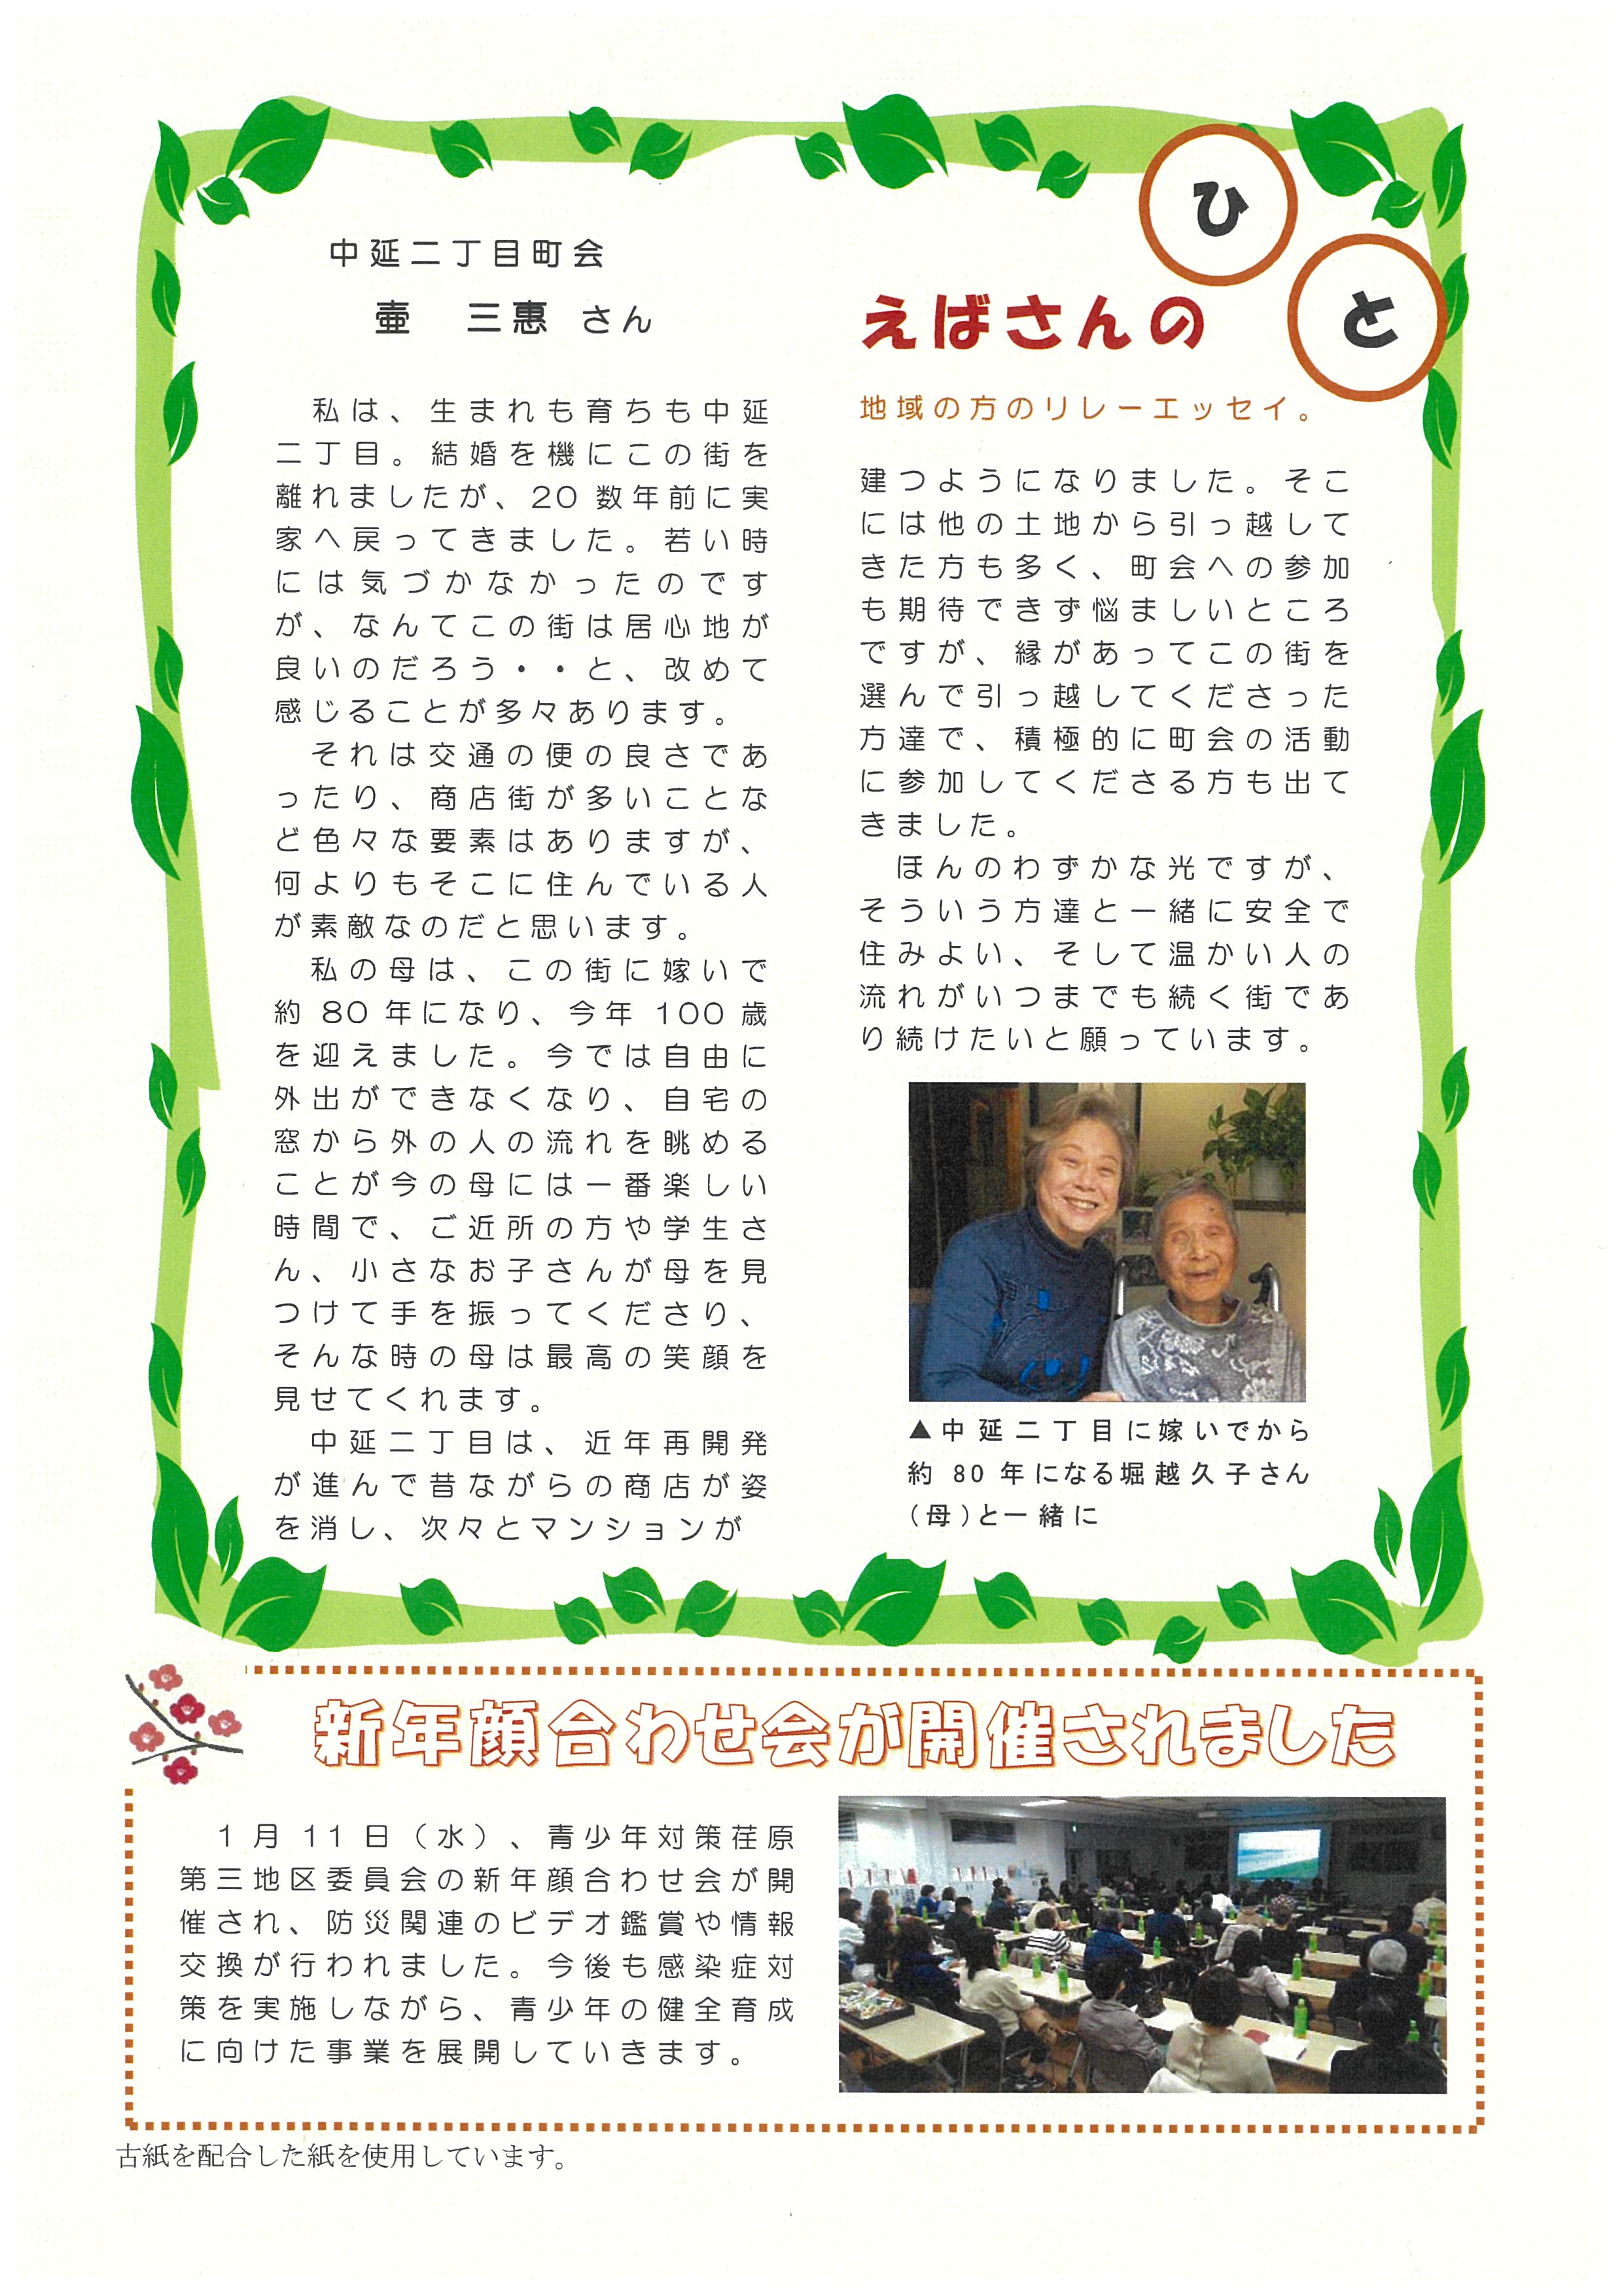 えばさんの
ひ
と
地域の方のリレーエッセイ。
中延二丁目町会
壷　三惠 さん
　私は、生まれも育ちも中延
二丁目。結婚を機にこの街を
離れましたが、20 数年前に実
家へ戻ってきました。若い時
には気づかなかったのです
が、なんてこの街は居心地が
良いのだろう・・と、改めて
感じることが多々あります。
　それは交通の便の良さであ
ったり、商店街が多いことな
ど色々な要素はありますが、
何よりもそこに住んでいる人
が素敵なのだと思います。
　私の母は、この街に嫁いで
約 80 年になり、今年 100 歳
を迎えました。今では自由に
外出ができなくなり、自宅の
窓から外の人の流れを眺める
ことが今の母には一番楽しい
時間で、ご近所の方や学生さ
ん、小さなお子さんが母を見
つけて手を振ってくださり、
そんな時の母は最高の笑顔を
見せてくれます。
　中延二丁目は、近年再開発
が進んで昔ながらの商店が姿
を消し、次々とマンションが
建つようになりました。そこ
には他の土地から引っ越して
きた方も多く、町会への参加
も期待できず悩ましいところ
ですが、縁があってこの街を
選んで引っ越してくださった
方達で、積極的に町会の活動
に参加してくださる方も出て
きました。
　ほんのわずかな光ですが、
そういう方達と一緒に安全で
住みよい、そして温かい人の
流れがいつまでも続く街であ
り続けたいと願っています。
▲中延二丁目に嫁いでから
約 80 年になる堀越久子さん
（母）と一緒に
新年顔合わせ会が開催されました
　1 月 11 日（水）、青少年対策荏原
第三地区委員会の新年顔合わせ会が開
催され、防災関連のビデオ鑑賞や情報
交換が行われました。今後も感染症対
策を実施しながら、青少年の健全育成
に向けた事業を展開していきます。
古紙を配合した紙を使用しています。